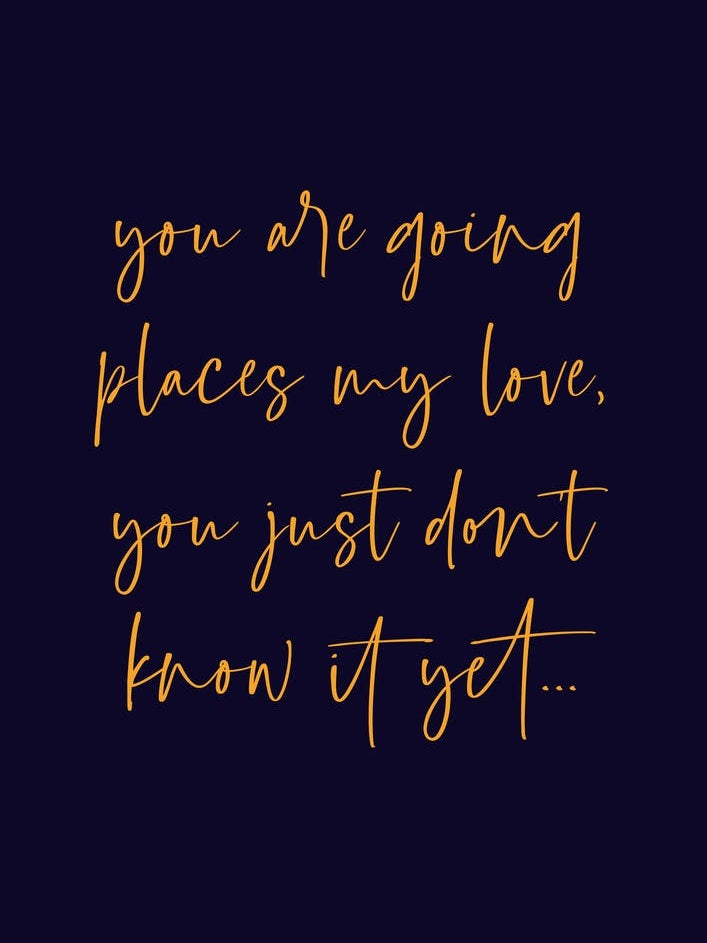 you are going
places my love,
you just don't
know it yet...